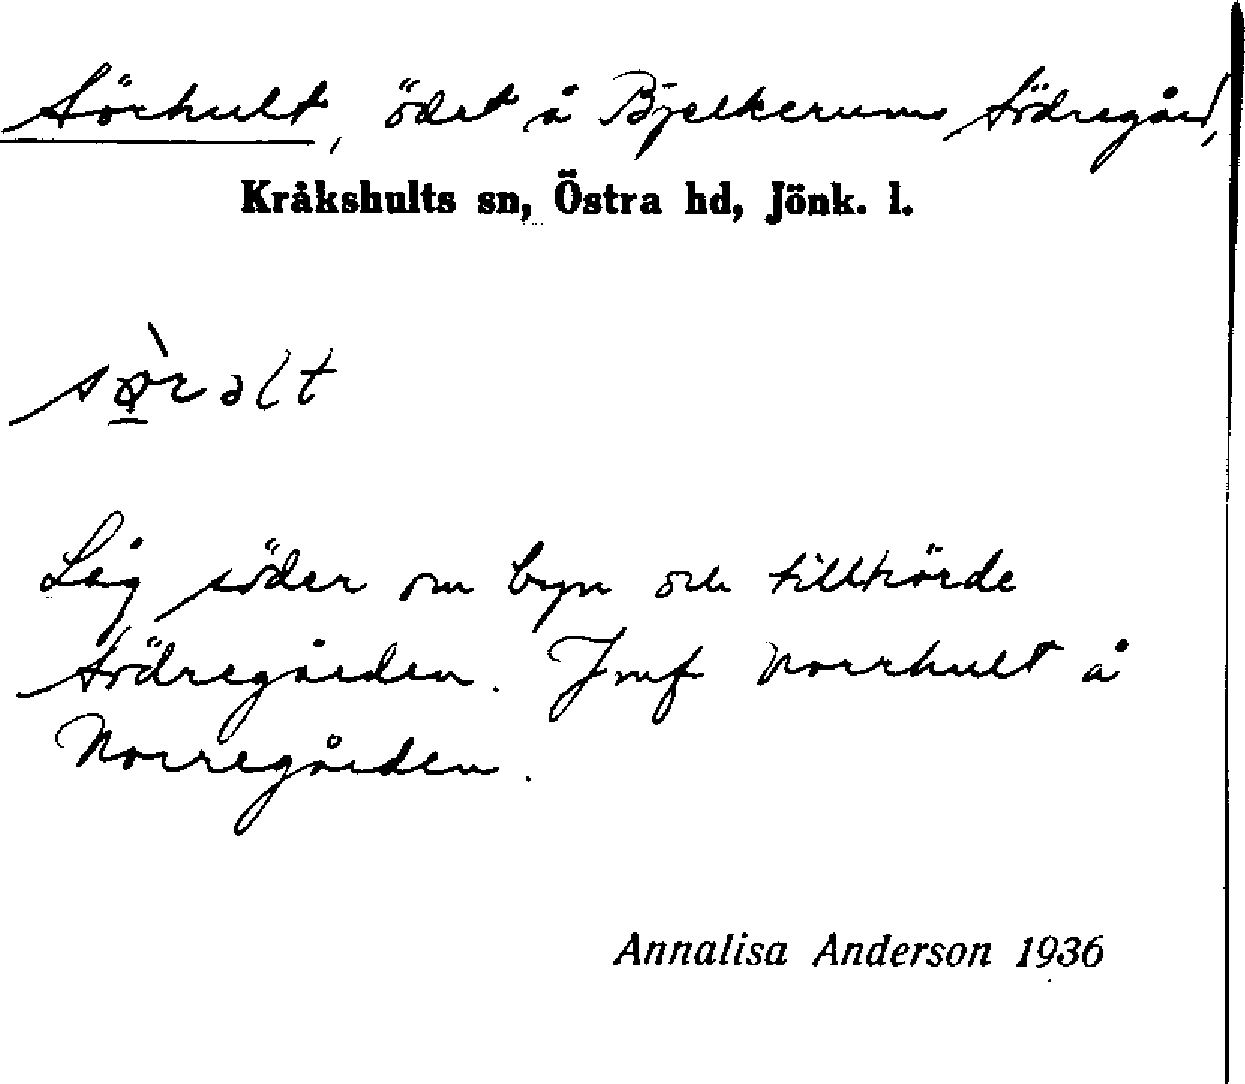 Sörhult, ödet å Bjelkerums Södregård,
Kråkshults sn, Östra hd, Jönk. l.
sø̀rəlt
Låg söder om byn och tillhörde
Södregården. Jmf Norrhult å
Norregården.
Annalisa Anderson 1936